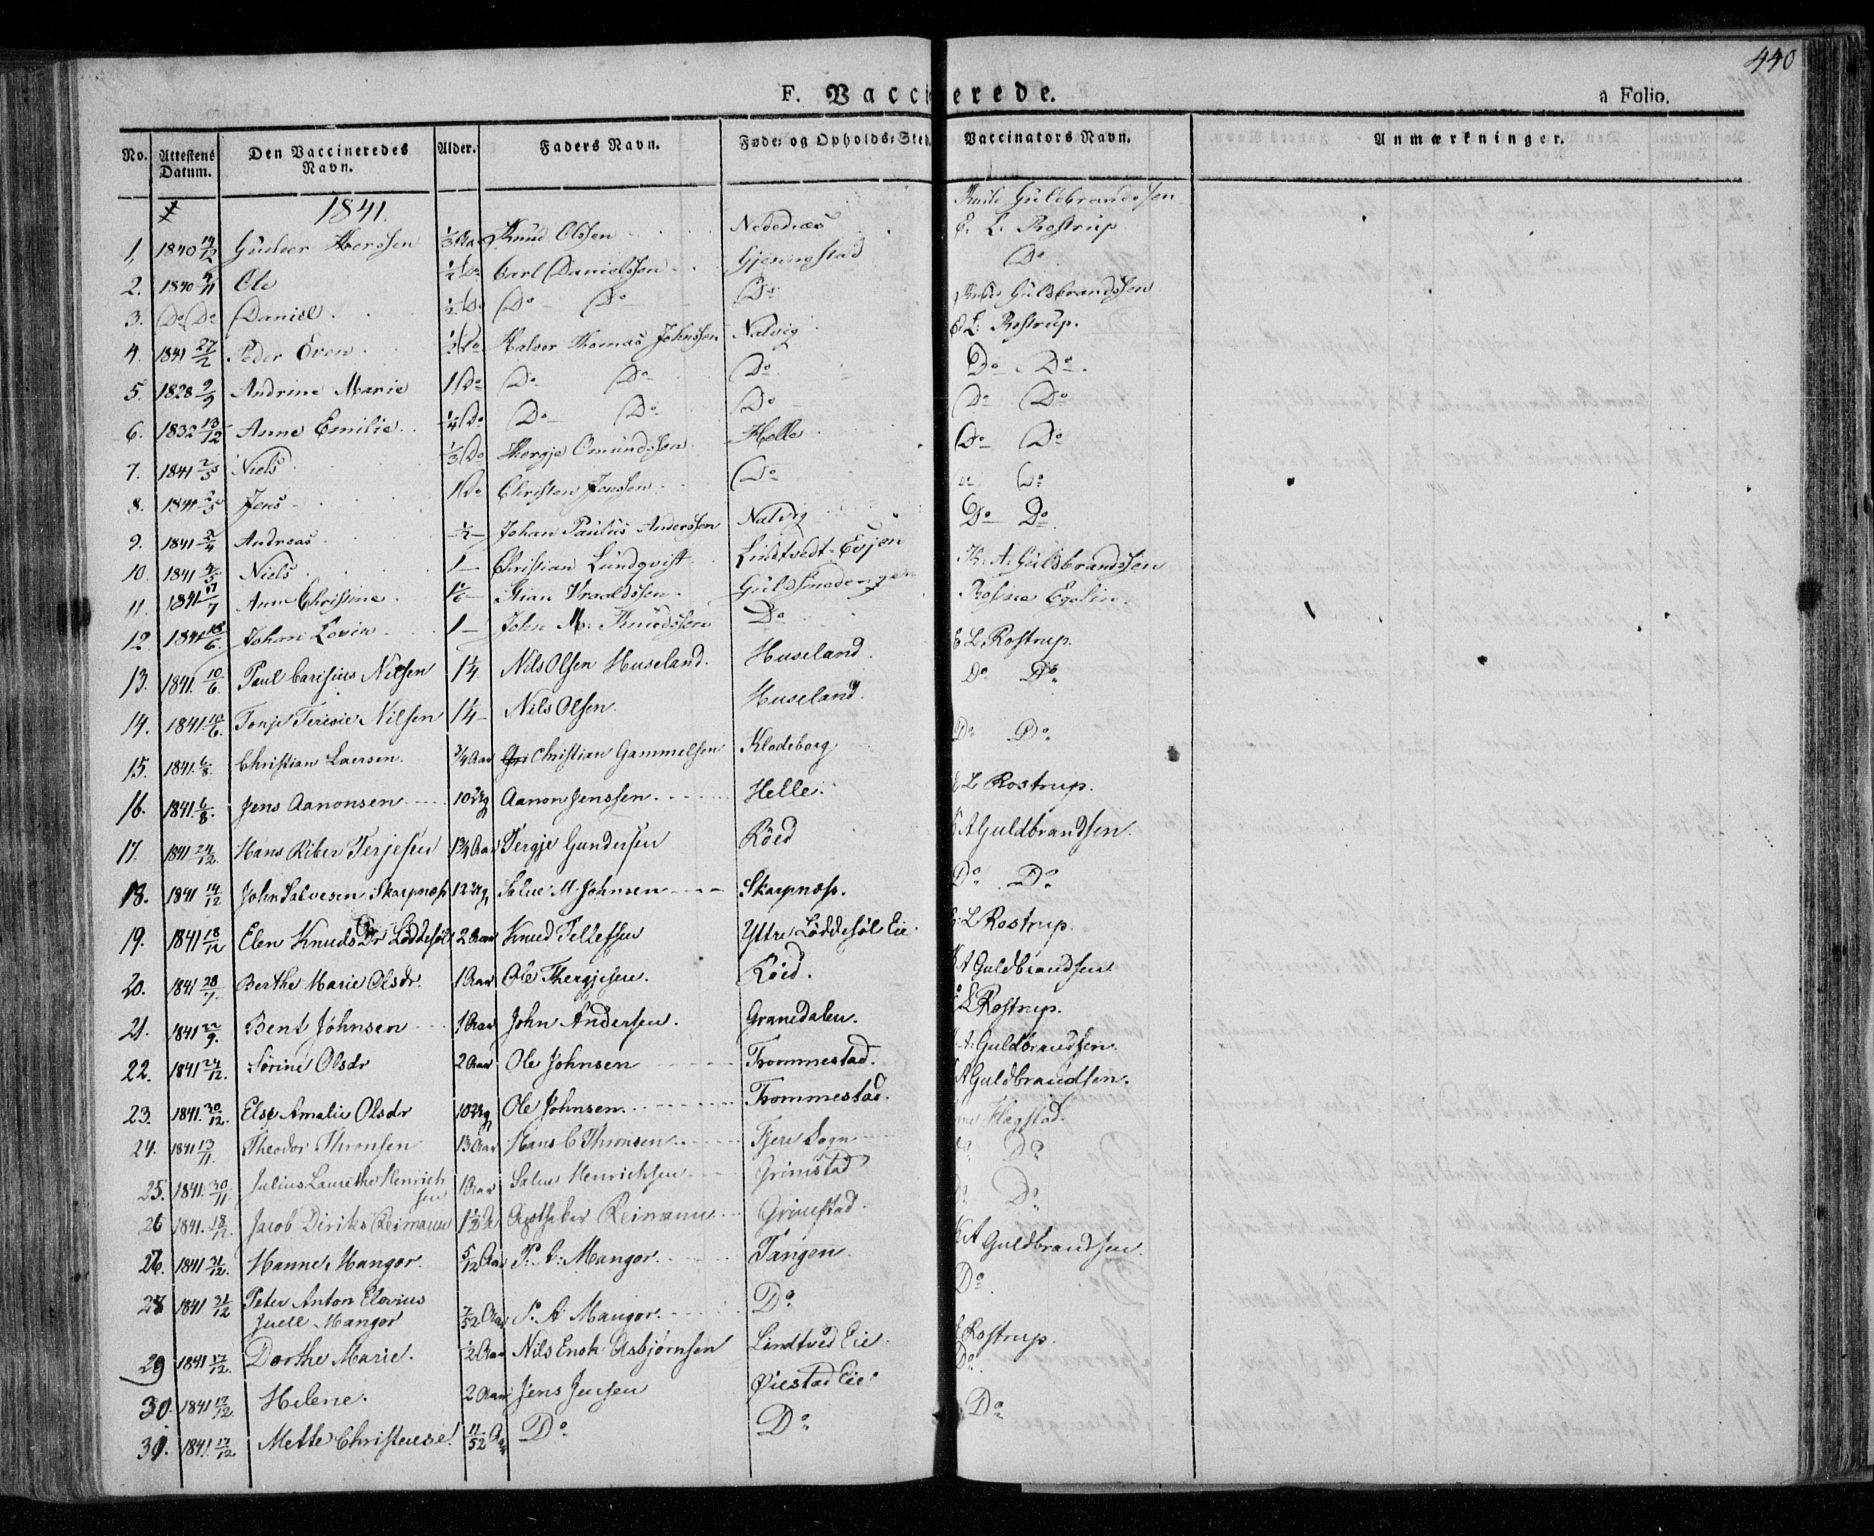 440
F. Vaccinerede. a Folio.
No. Attestens Datum. Den Vaccineredes Navn. Alder. Faders Navn. Føde- og Opholds-Sted. Vaccinators Navn. Anmærkninger.
1841.
1. 1840 14/12 1/3 Aar Knud Olssen Nedenæs Guldbrandssen
2. 1840 Ole 1/2 Do Carl Danielssen Gjeningstad E. L. Rostrup
3. Do Do Daniel 1/2 Do Do Do Do Do
4. 1841 27/2 Peder Even Do Halvor Thomas Johnssen Natvig Guldbrandssen
5. 1828 9/9 Andrine Marie 1 Do Do Do Do E. L. Rostrup.
6. 1832 13/12 Anne Emilie 1/4 Do Do Do Do Do Do
7. 1841 2/5 Niels 1/3 Do Thergje Omundssen Helle Do Do
8. 1841 Jens 1 Do Christen Jenssen Do Do Do
9. 1841 2/4 Andreas 1/2 — Johan Paulus Anderssen Natvig Do
10. 1841 4/5 Niels 1 — Christian Lundqvist Lindtvedt-Eyjen Do Do
11. 1841 /7 Anne Christine Stian Vraaldssen Guldsmedengen K. A. Guldbrandssen
12 1841 18/6. Johan Lovin 1 — John M. Knudssen Do Rosine Egelin.
13. 1841. 10/6. Paul Carisius Nilsen 1 1/4 Nils Olsen Huseland. Huseland. E L. Rostrup.
14. 1841. 10/6. Tonje Teresie Nilsen 1 1/4 Nils Olsen. Huseland. Do Do
15. 1841. 6/8. Christian Laersen. 3/4 Aar Christian Gammelsen Klodeborg Do Do
16. 1841. 6/8. Jens Aanonsen 10 Aanon Jenssen. Helle. E L Rostrup.
17. 1841 24/12. Hans Riber Terjesen 1 3/4 Aar Tergje Gundersen Röed K A Guldbrandsen.
18. 1841 14/12 John Salvesen Skarpnæs 12 Salve M. Johnsen Skarpnæs. Do Do
19. 1841 18/12 Elen Knudsdr Løddesøl 2 Aar Knud Tellefsen Yttre Løddesøl Eie. E. L Rostrup.
20. 1841 28/7. Berthe Marie Olsdr. 1 Aar Ole Thergjesen. Röed. K A Guldbrandsen
21. 1841 22/9. Bent Johnsen 1 Aar John Andersen. Granedalen. E L Rostrup.
22. 1841 24/12. Sørine Olsdr 2 Aar Ole Johnsen Trommestad. K. A. Guldbrandsen.
23. 1841. 30/12. Else Amalie Olsdr 10 Ole Johnsen Trommestad. K A Guldbrandsen.
24. 1841 13/11. Theodor Thronsen 13 Aar Hans C Thronsen Fjere Sogn Hagstad.
25. 1841. 30/11 Julius Laurithe Henrich
sen 1 Aar Salve Henrichsen Grimstad Do Do
26 1841. 18/12. Jacob Diriks Reimann 1 1/2 A Apotheker Reimann Grimstad. Do Do
26. 1841 31/12. Hanne Mangor. 5/12 Aar P. A. Mangor. Tangen. K A Guldbrandsen.
28 1841 31/12 Peter Anton Elovius
Juell Mangor 7/52 Aar P. A. Mangor. Do Do
29 1841 17/12. Dorthe Marie. 1/2 Aar Nils Enok Asbjørnsen Lindtved Eie. Rostrup.
30. 1841 17/12. Helene. 2 Aar Jens Jensen Øiestad Eie. Do
31. 1841. 17/12 Mette Christense! 11/52 Aar Do Do Do